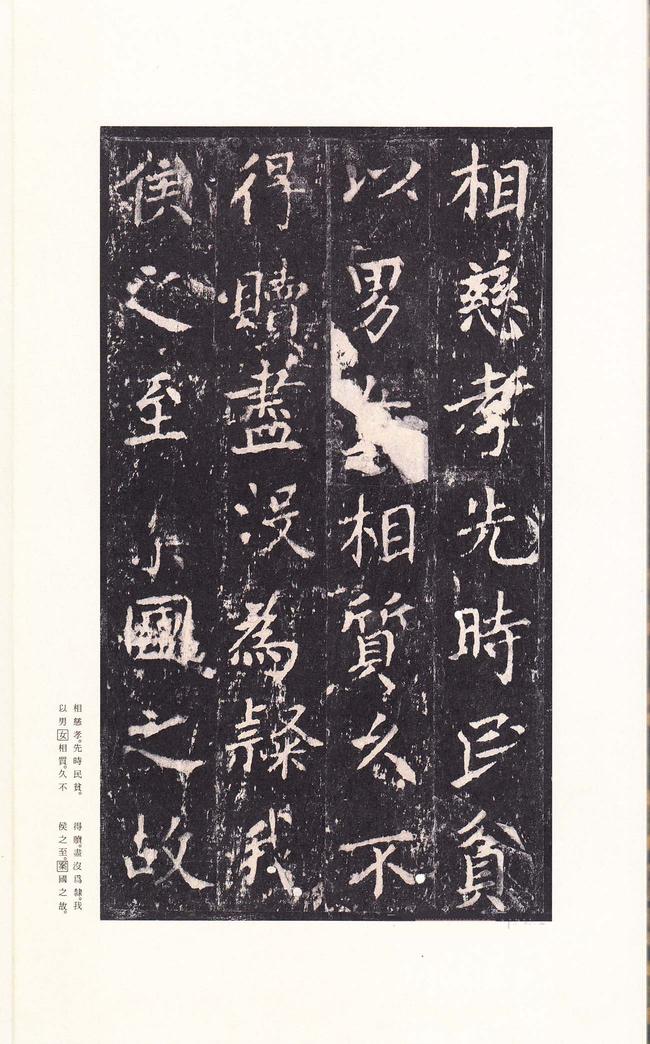 相慈孝先時民貧
以男相質久不
得贖盡沒為隸我
侯之至國之故
相慈孝。先時民貧。
以男女相質。久不
得贖。盡沒爲隸。我
侯之至。案國之故。